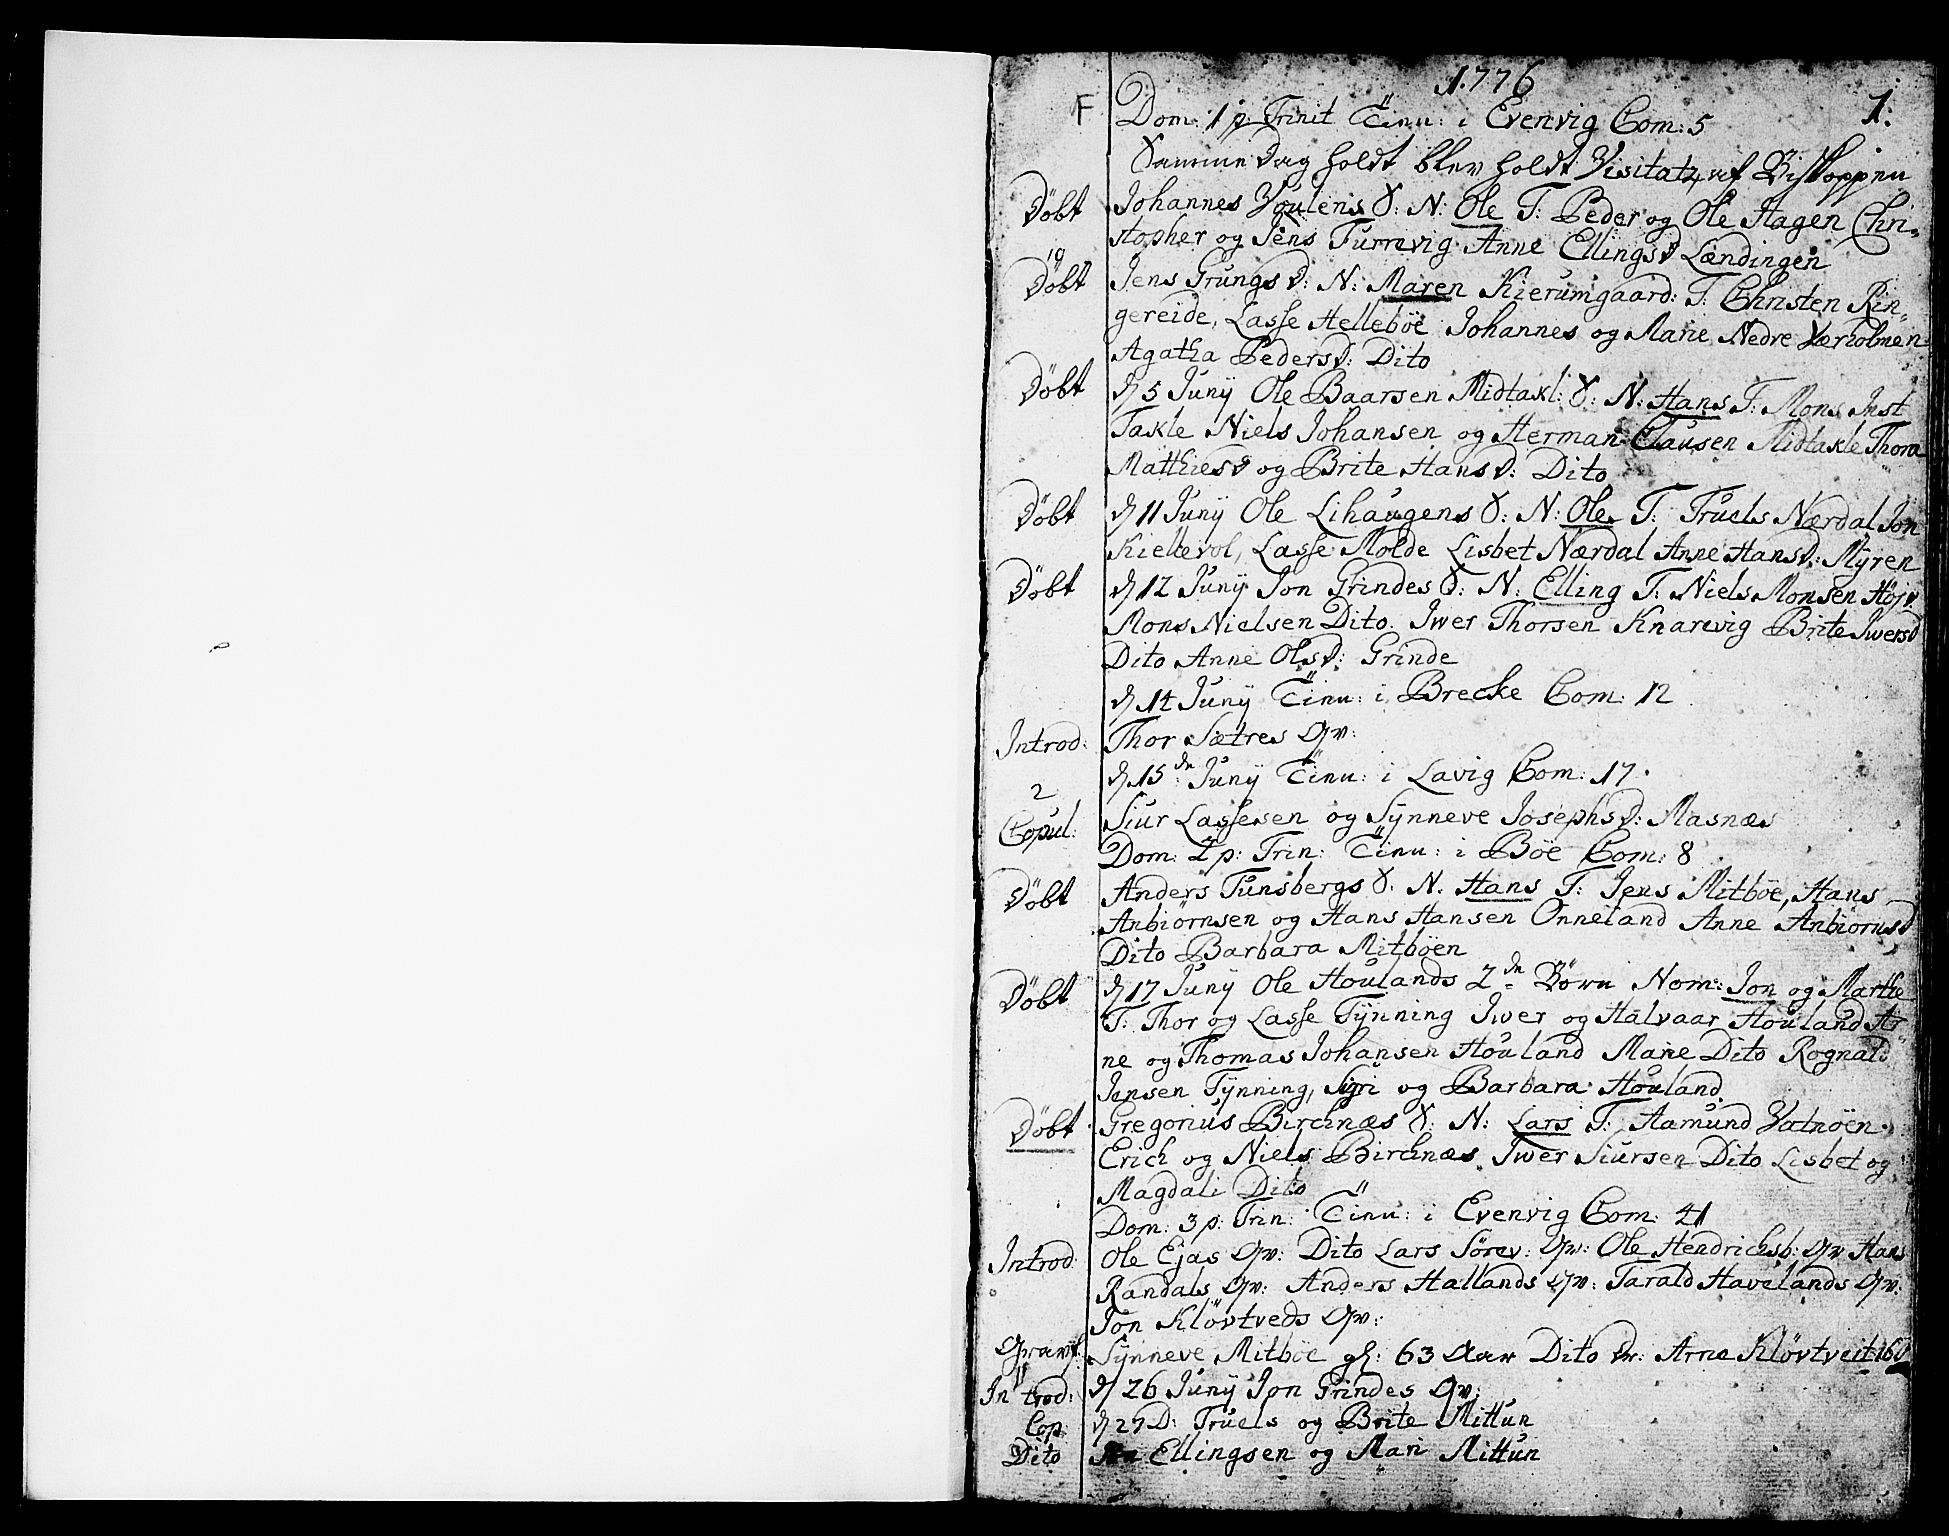 1776
F Dom: 1 p: Trinit Tien: i Evenvig Com: 5 1:
Samme Dag holdt blev holdt Visitatz af Biskoppen
Döbt Johannes Youlens S: N: Ole T: Peder og Ole Hagen Chri-
stopher og Jens Furrevig Anne Ellingsd Lændingen
19
Döbt Jens Grungs D: N: Maren Kierumgaard: T: Christen Rin-
gereide, Lasse Helleböe Johannes og Marie Nedre Værholmen
Agatha Pedersd: Dito
Döbt d 5 Junij Ole Baarsen Midtakl: S: N: Hans T: Mons Inst
Takle Niels Johansen og Herman Clausen Midtakle Thora
Mathiesd og Brite Hansd: Dito
Döbt d 11 Junij Ole Lihaugens S: N: Ole T: Truels Nærdal Jon
Kieltevol, Lasse Molde Lisbet Nærdal Anne Hansd: Myren
Döbt d 12 Junij Jon Grindes S: N: Elling T: Niels Monsen Höjv
Mons Nielsen Dito. Iwer Thorsen Knarevig Brite Iwersd
Dito Anne Olsd: Grinde
d 14 Junij Tien: i Brecke Com: 12
Introd: Thor Sætres Qv:
d 15de Junij Tien: i Lavig Com: 17.
2
Copul: Siur Lassesen og Synneve Josephsd: Masnæs
Dom: 2 p: Trin: Tien: i Böe Com: 8
Döbt Anders Tunsbergs S. N. Hans T: Jens Mitböe, Hans
Anbiörnsen og Hans Hansen Onneland Anne Anbiörnsd
Dito Barbara Mitböen
Döbt d 17 Junij Ole Houlands 2de Börn Nom: Jon og Marthe
T: Thor og Lasse Tynning Iwer og Halvaar Houland Ar-
ne og Thomas Johansen Houland Marie Dito Rognald
Jensen Tynning, Siri og Barbara Houland
Döbt Gregorius Birchnæs S: N: Lars T: Aamund Vatnöen
Erich og Niels Birchnæs Iwer Siursen Dito Lisbet og
Magdali Dito
Dom: 3 p: Trin: Tien: i Evenvig Com: 41
Introd: Ole Ejas Qv: Dito Lars Sörev: Qv: Ole Hendrichsb: Qv Hans
Randals Qv: Anders Hallands Qv: Tarald Havelands Qv:
Jon Klövtveds Qv:
Gravf: Synneve Mitböe gl: 63 Aar Dito Dr: Arne Klövtveit
Introd: d 26 Junij Jon Grindes Qv:
Cop d 27 D: Truels og Brite Mittun
Dito Ellingsen og Mari Mittun